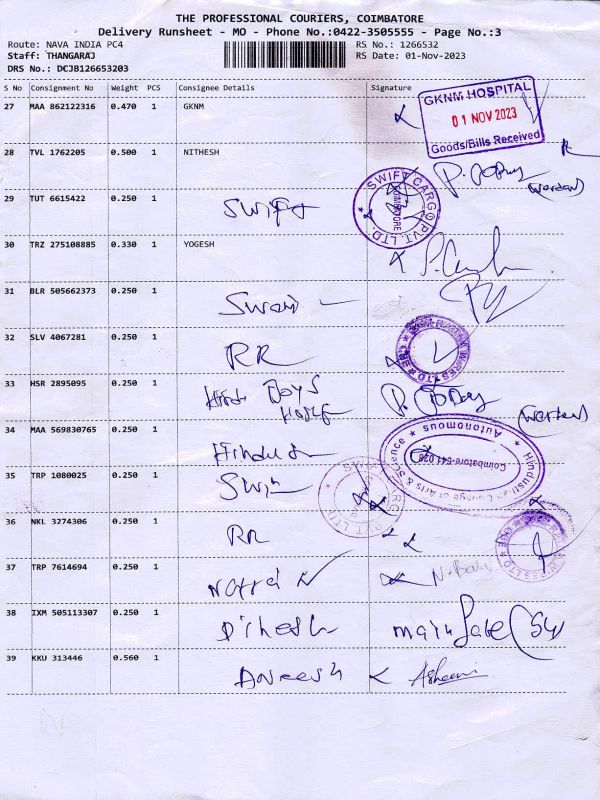 THE PROFESSIONAL COURIERS, COIMBATORE
Delivery Runsheet - MO - Phone No.:0422-3505555 - Page No.:3
Route: NAVA INDIA PC4 RS No.: 1266532
Staff: THANGARAJ RS Date: 01-Nov-2023
DRS No.: DCJB126653203
S No Consignment No Weight PCS Consignee Details Signature
27 MAA 862122316 0.470 1 GKNM
GKNM HOSPITAL
01 NOV 2023
Goods/Bills Received
28 TVL 1762205 0.500 1 NITHESH
(warden)
29 TUT 6615422 0.250 1 Swift
SWIFT CARGO PVT. LTD.
COIMBATORE
30 TRZ 275108885 0.330 1 YOGESH
31 BLR 505662373 0.250 1
32 SLV 4067281 0.250 1 RR
33 HSR 2895095 0.250 1 Boys
(warden)
34 MAA 569830765 0.250 1
Hindusthan College of Arts & Science
Autonomous
Coimbatore-641 028
35 TRP 1080025 0.250 1
36 NKL 3274306 0.250 1 RR
37 TRP 7614694 0.250 1
38 IXM 505113307 0.250 1 Dinesh main gate
39 KKU 313446 0.560 1 Aneesh